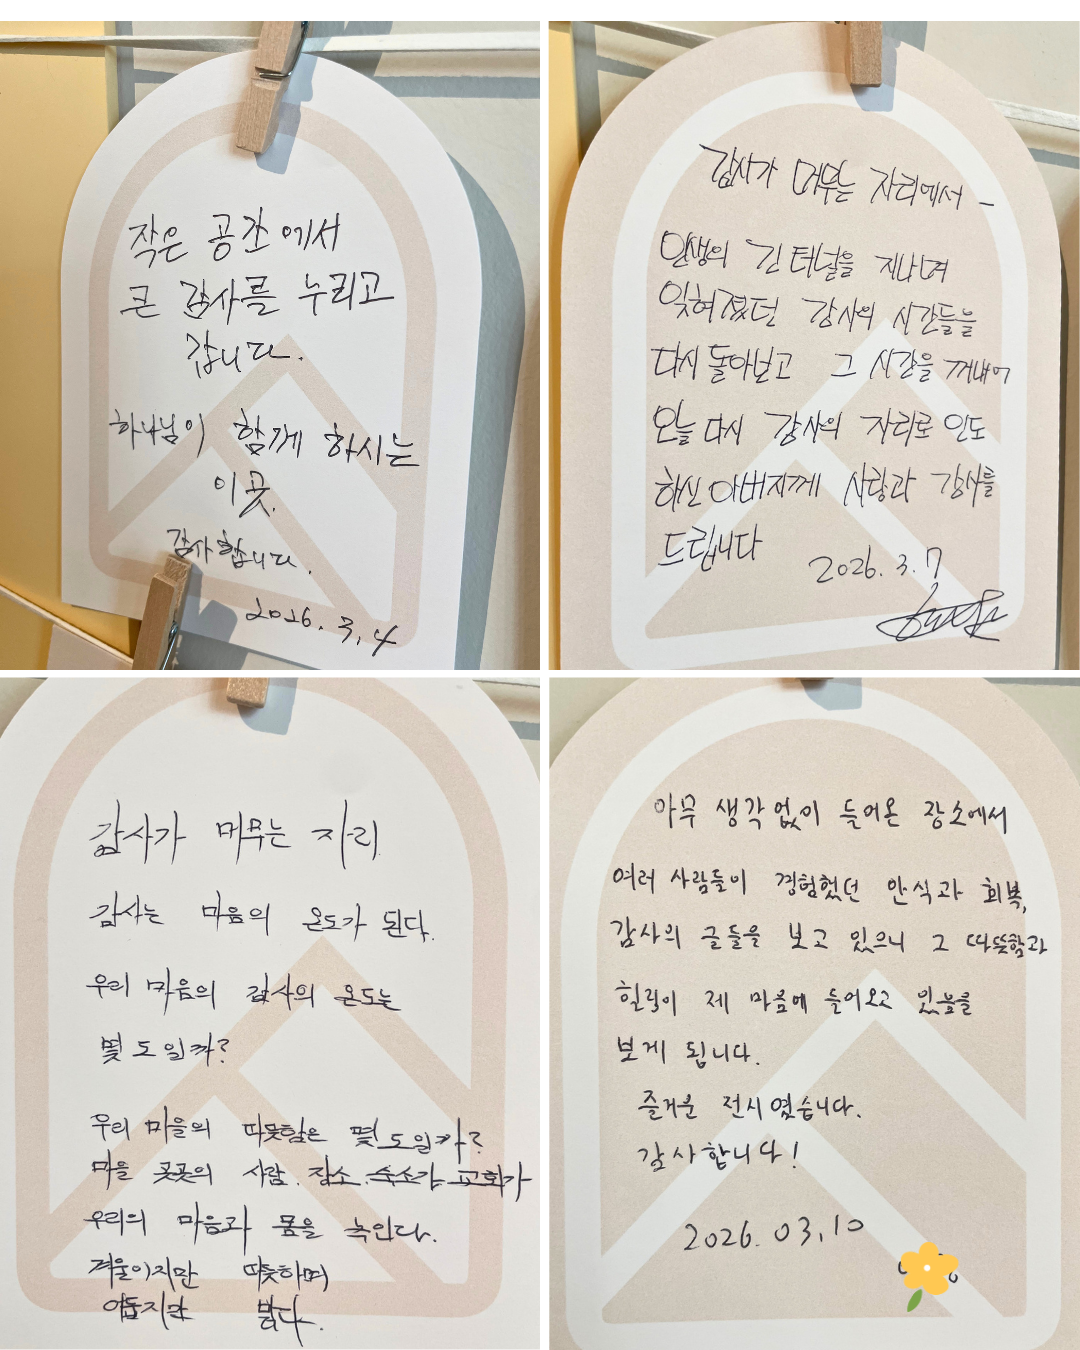 작은 공간에서
큰 감사를 누리고
갑니다.
하나님이 함께 하시는
이곳.
감사합니다.
2026. 3. 4
감사가 머무는 자리에서 -
인생의 긴 터널을 지나며
잊혀졌던 감사의 시간들을
다시 돌아보고 그 시간을 꺼내어
오늘 다시 감사의 자리로 인도
하신 아버지께 사랑과 감사를
드립니다
2026. 3. 7
감사가 머무는 자리
감사는 마음의 온도가 된다.
우리 마음의 감사의 온도는
몇 도일까?
우리 마을의 따뜻함은 몇 도일까?
마을 곳곳의 사람. 장소. 숙소가, 교회가
우리의 마음과 몸을 녹인다.
겨울이지만 따뜻하며
어둡지만 밝다.
아무 생각 없이 들어온 장소에서
여러 사람들이 경험했던 안식과 회복,
감사의 글들을 보고 있으니 그 따뜻함과
힐링이 제 마음에 들어오고 있음을
보게 됩니다.
즐거운 전시였습니다.
감사합니다!
2026. 03. 10